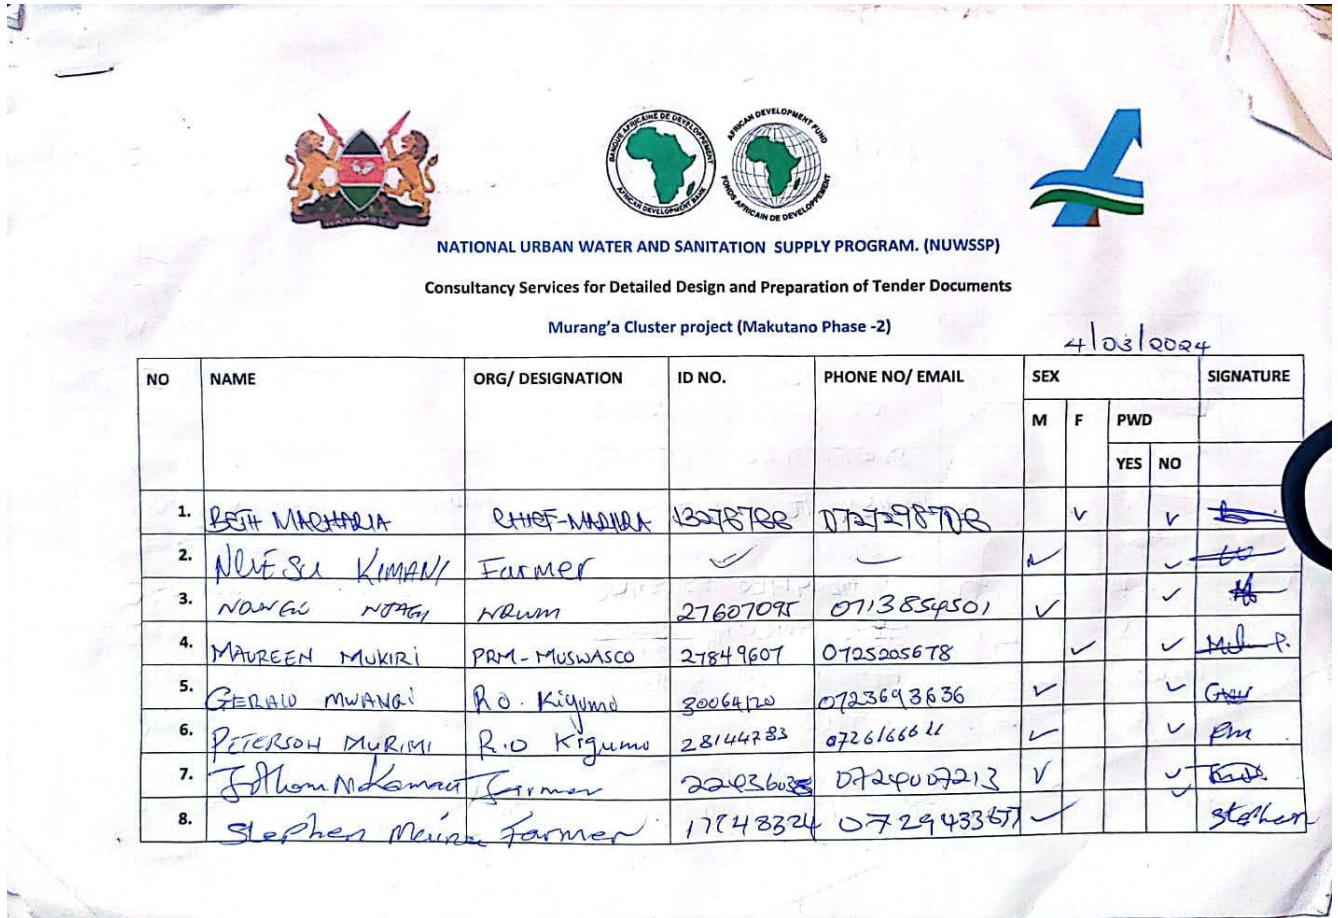 HARAMBEE
BANQUE AFRICAINE DE DEVELOPPEMENT
AFRICAN DEVELOPMENT BANK
AFRICAN DEVELOPMENT FUND
FONDS AFRICAIN DE DEVELOPPEMENT
NATIONAL URBAN WATER AND SANITATION SUPPLY PROGRAM. (NUWSSP)
Consultancy Services for Detailed Design and Preparation of Tender Documents
Murang'a Cluster project (Makutano Phase -2)
4/03/2024
NO NAME ORG/ DESIGNATION ID NO. PHONE NO/ EMAIL SEX SIGNATURE
M F PWD
YES NO
1. BETH MACHARIA CHIEF- ✓ ✓
2. KIMANI Farmer ✓ ✓
3. NJAGI 27607095 0713854501 ✓ ✓
4. MAUREEN MUKIRI PRM-MUSWASCO 27849607 0725205678 ✓ ✓
5. GERALD MWANGI R.O. Kigumo 30064120 0723693636 ✓ ✓
6. PETERSON MURIMI R.O Kigumo 28144783 ✓ ✓ Pm
7. Farmer 0724007213 ✓ ✓
8. Stephen Maina Farmer ✓ ✓ Stephen